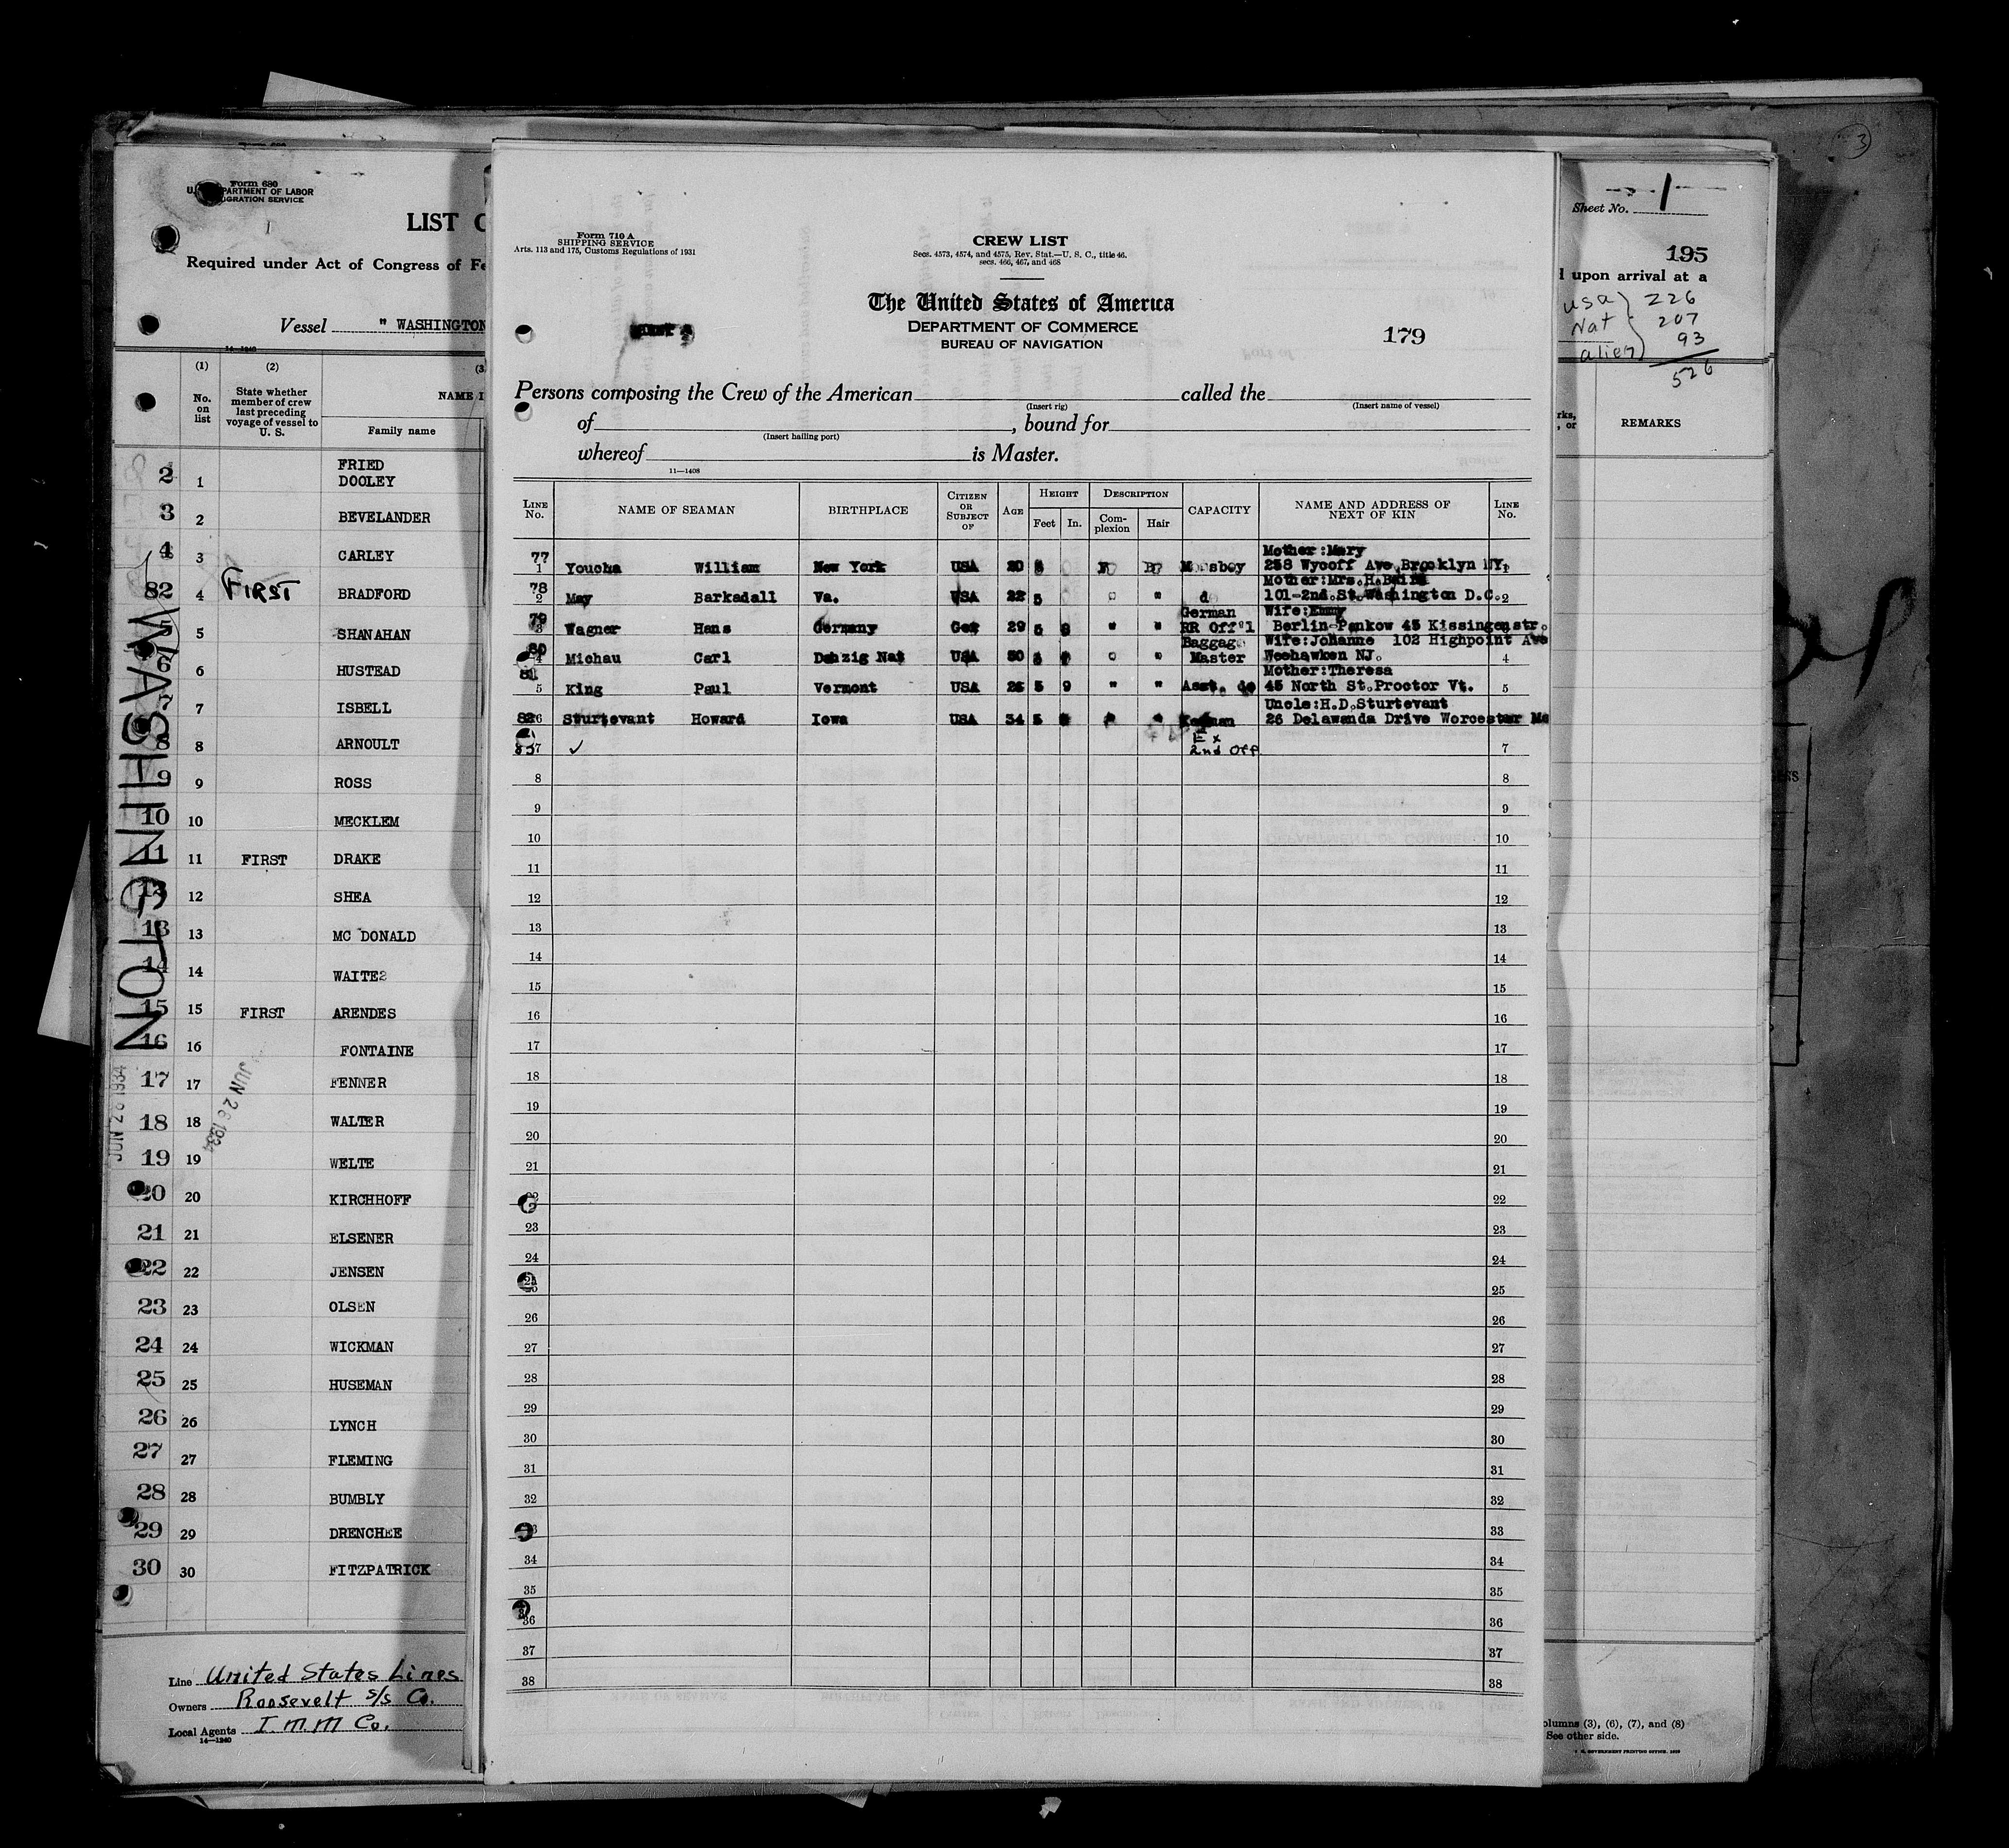 Form 680
U. S. DEPARTMENT OF LABOR
IMMIGRATION SERVICE
LIST O
Required under Act of Congress of Fe
Vessel " WASHINGTON
14—1240
(1) (2) (3
No. on list
State whether member of crew last preceding voyage of vessel to U. S.
NAME I
Family name
2 1 FRIED
DOOLEY
3 2 BEVELANDER
4 3 CARLEY
82 4 FIRST BRADFORD
5 SHANAHAN
6 6 HUSTEAD
7 7 ISBELL
8 8 ARNOULT
9 9 ROSS
10 10 MECKLEM
11 11 FIRST DRAKE
12 12 SHEA
13 13 MC DONALD
14 14 WAITE
15 15 FIRST ARENDES
16 16 FONTAINE
17 17 FENNER
18 18 WALTER
19 19 WELTE
20 20 KIRCHHOFF
21 21 ELSENER
22 22 JENSEN
23 23 OLSEN
24 24 WICKMAN
25 25 HUSEMAN
26 26 LYNCH
27 27 FLEMING
28 28 BUMBLY
29 29 DRENCHEE
30 30 FITZPATRICK
WASHINGTON
JUN 26 1934
JUN 26 1934
Line United States Lines
Owners Roosevelt s/s Co.
Local Agents I M M Co.
14—1240
Form 710 A
SHIPPING SERVICE
Arts. 113 and 175, Customs Regulations of 1931
CREW LIST
Secs. 4573, 4574, and 4575, Rev. Stat.—U. S. C., title 46.
secs. 466, 467, and 468
The United States of America
DEPARTMENT OF COMMERCE
BUREAU OF NAVIGATION
179
Persons composing the Crew of the American called the
(Insert rig) (Insert name of vessel)
of , bound for
(Insert hailing port)
whereof is Master.
11—1408
LINE No. NAME OF SEAMAN BIRTHPLACE CITIZEN OR SUBJECT OF AGE HEIGHT Feet In. DESCRIPTION Complexion Hair CAPACITY NAME AND ADDRESS OF NEXT OF KIN LINE No.
Mother:Mary
77 1 Youcha William New York USA 20 258 Wycoff Ave Brooklyn NY. 1
Mother:Mrs.H.
78 2 May Barkadall Va. USA 22 5 " 101-2nd.St.Washington D.C. 2
German Wife:Emmy
79 3 Wagner Hans Germany Ger 29 5 8 " " RR Off'l Berlin-Pankow 45 Kissingenstr.
Baggage Wife:Johanne 102 Highpoint Ave
80 4 Michau Carl Danzig Nat USA 30 " Master Weehawken NJ. 4
Mother:Theresa
81 5 King Paul Vermont USA 25 5 9 " " Asst. do 45 North St.Proctor Vt. 5
Uncle:H.D.Sturtevant
82 6 Sturtevant Howard Iowa USA 34 5 " 26 Delawanda Drive Worcester Ma
7 ✓ Ex 2nd Off 7
8 8
9 9
10 10
11 11
12 12
13 13
14 14
15 15
16 16
17 17
18 18
19 19
20 20
21 21
22 22
23 23
24 24
25 25
26 26
27 27
28 28
29 29
30 30
31 31
32 32
33 33
34 34
35 35
36 36
37 37
38 38
3
Sheet No. 1
195
d upon arrival at a
USA 226
Nat 207
alien 93
526
rks,
, or
REMARKS
olumns (3), (6), (7), and (8)
See other side.
U. S. GOVERNMENT PRINTING OFFICE